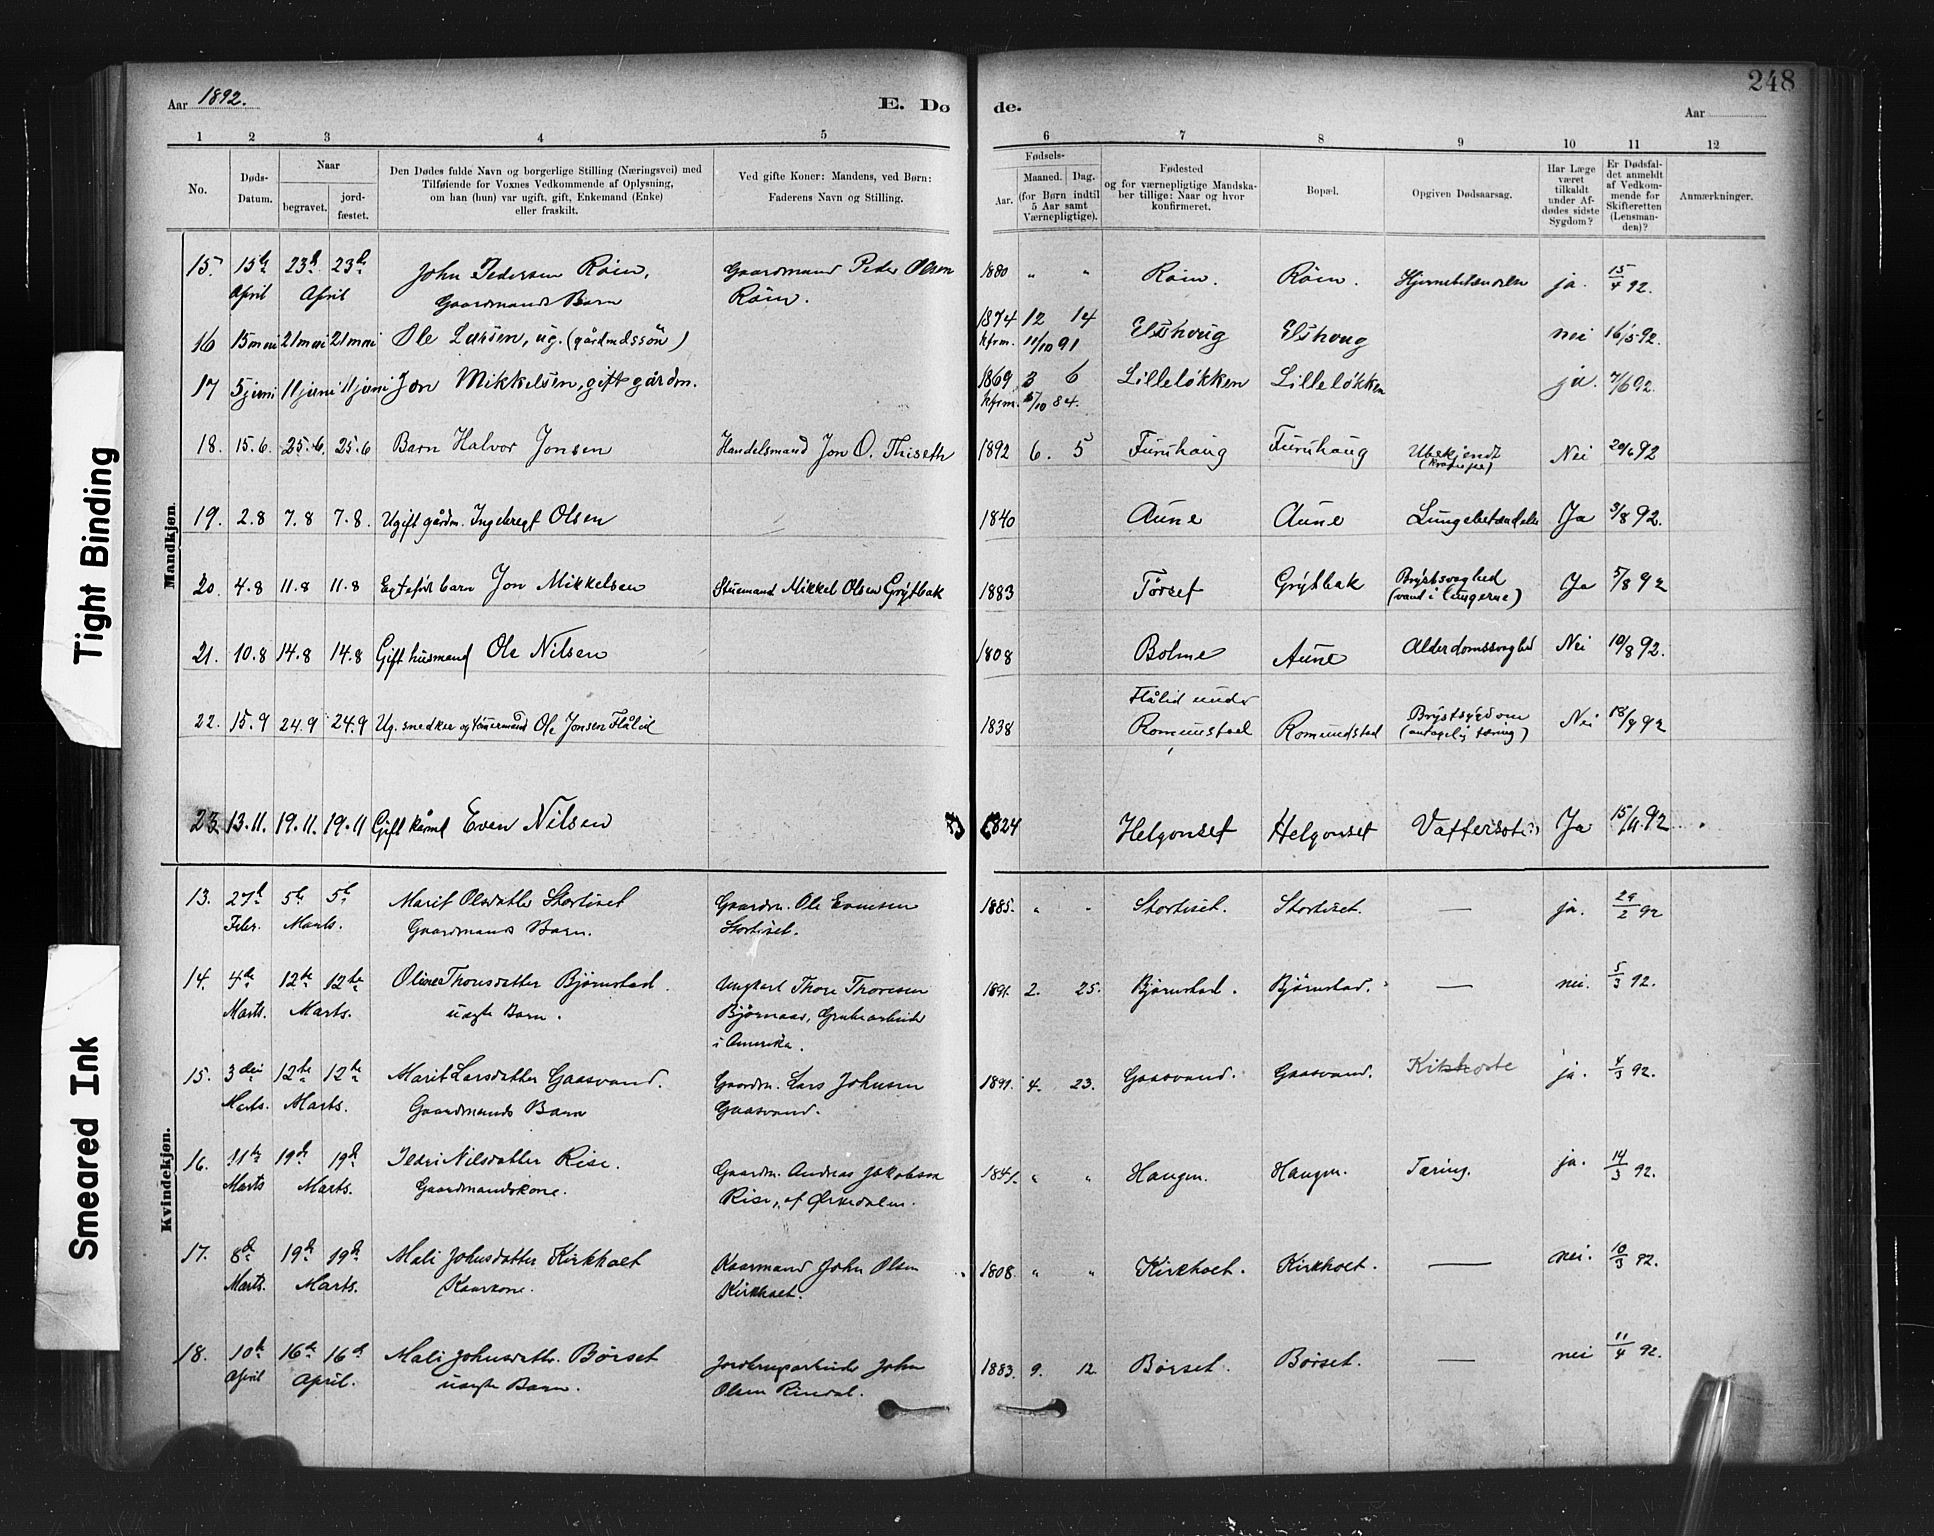 248
Aar 1892.
E. Dø
de.
Aar
1 2 3 4 5 6 7 8 9 10 11 12
No.
Døds-
Datum.
Naar
begravet.
jord-
fæstet.
Den Dødes fulde Navn og borgerlige Stilling (Næringsvei) med
Tilføiende for Voxnes Vedkommende af Oplysning,
om han (hun) var ugift, gift, Enkemand (Enke)
eller fraskilt.
Ved gifte Koner: Mandens, ved Børn:
Faderens Navn og Stilling.
Fødsels-
Aar.
Maaned.
Dag.
(for Børn indtil
5 Aar samt
Værnepligtige).
Fødested
og for værnepligtige Mandska-
ber tillige: Naar og hvor
konfirmeret.
Bopæl.
Opgiven Dødsaarsag.
Har Læge
været
tilkaldt
under Af-
dødes sidste
Sygdom?
Er Dødsfal-
det anmeldt
af Vedkom-
mende for
Skifteretten
(Lensman-
den)?
Anmærkninger.
Mandkjøn.
15. 15de 23de 23de John Pedersen Röin, Gaardmand Peder Olsen 1880 " " Röin. Röin. ja. 15/4 92.
April April Gaardmands Barn Röin.
16 15 mai 21 mai 21 mai Ole Larsen, ug. (gårdmdssön) 1874 12 14 Elshoug Elshoug nei 16/5 92.
kfrm. 11/10 91
17 5 juni 11 juni 11 juni Jon Mikkelsen, gift gårdm. 1869 3 6 Lilleløkken Lilleløkken ja. 7/6 92.
kfrm. /10 84.
18. 15.6. 25.6. 25.6 Barn Halvor Jonsen Handelsmand Jon O. Thiseth 1892 6. 5 Furuhaug Furuhaug Ubekjendt Nei 20/6 92
19. 2.8 7.8 7.8. Ugift gårdm. Ingebregt Olsen 1840 Aune Aune Lungebetændelse Ja 3/8 92.
20. 4.8 11.8 11.8 Egtefødt barn Jon Mikkelsen Stuemand Mikkel Olsen Grýtbak 1883 Tørset Grýtbak Brýstsvaghed Ja 5/8 92
(vand i lungerne)
21. 10.8 14.8 14.8 Gift husmand Ole Nilsen 1808 Bolme Aune Alderdomssvaghed Nei 10/8 92.
Flålid under
22. 15.9 24.9 24.9 Ug. snedker og tømermand Ole Jonsen Flålid 1838 Romunstad Romundstad Brýstsýgdom Nei 18/9 92
(antagelig tæring)
23. 13.11. 19.11. 19.11 Gift kårmd Even Nilsen 1824 Helgonset Helgonset Vattersot Ja 15/11 92
Kvindekjøn.
13. 27de 5te 5te Marit Olsdatter Stortiset Gaardm. Ole Evensen 1885. " " Stortiset. Stortiset. — ja. 29/2 92
Febr. Marts. Gaardmands Barn. Stortiset.
14. 4de 12te 12te Oline Thoresdatter Bjørnstad. Ungkarl Thore Thoresen 1891. 2. 25. Bjørnstad. Bjørnstad. — nei. 5/3 92.
Marts. Marts. uægte Barn. Bjørnaas, Grubearbeider
i Amerika.
15. 3die 12te 12te Marit Larsdatter Gaasvand. Gaardm. Lars Johnsen 1891. 4. 23. Gaasvand. Gaasvand. Kikhoste ja. 4/3 92.
Marts. Marts. Gaardmands Barn Gaasvand.
16. 11te 19de 19de Ildri Nilsdatter Rise. Gaardm. Andreas Jakobsen 1841. " " Haugen. Haugen. Tæring. ja. 14/3 92.
Marts Marts. Gaardmandskone. Rise, af Ørkedalen.
17. 8de 19de 19de Mali Johnsdatter Kirkholt Kaarmand John Olsen 1808. " " Kirkholt. Kirkholt. — nei. 10/3 92.
Marts. Marts. Kaarkone. Kirkholt.
18. 10de 16de 16de Mali Johnsdatter. Börset Jordbrugsarbeider John 1883. 9. 12 Börset. Börset. — nei 11/4 92.
April April. uægte Barn. Olsen Rindal.
Tight Binding
Smeared Ink